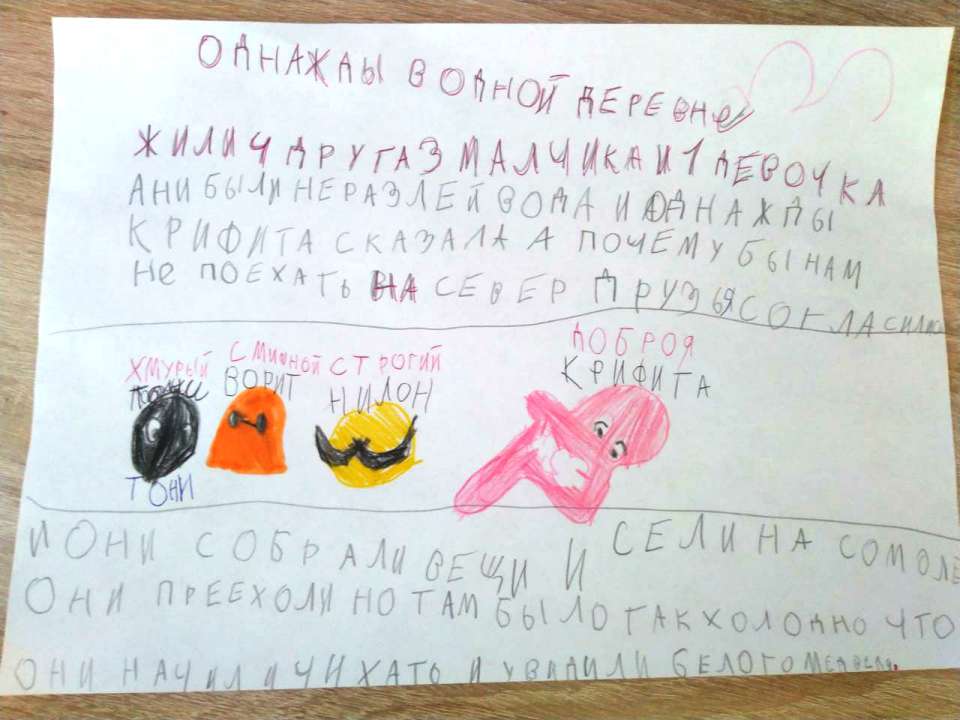 ОДНАЖДЫ В ОДНОЙ ДЕРЕВНе
ЖИЛИ Ч ДРУГА 3 МАЛЧИКА И 1 ДЕВОЧКА
АНИ БЫЛИ НЕРАЗЛЕЙ ВОДА И ОДНАЖДЫ
КРИФИТА СКАЗАЛА А ПОЧЕМУ БЫ НАМ
Не ПОЕХАТЬ НА СЕВЕР ДРУЗЬЯ СОГЛАСИЛИС
ХМУРЫЙ СМИШНОЙ СТРОГИЙ ДОБРОЯ
ВОРИТ НИЛОН КРИФИТА
ТОНИ
И ОНИ СОБРАЛИ ВЕЩИ И СЕЛИ НА СОМОЛЕ
ОНИ ПРЕЕХОЛИ НО ТАМ БЫЛО ТАК ХОЛОДНО ЧТО
ОНИ НАЧИЛИ ЧИХАТЬ И УВИДИЛИ БЕЛОГО МЕДВЕДЯ.